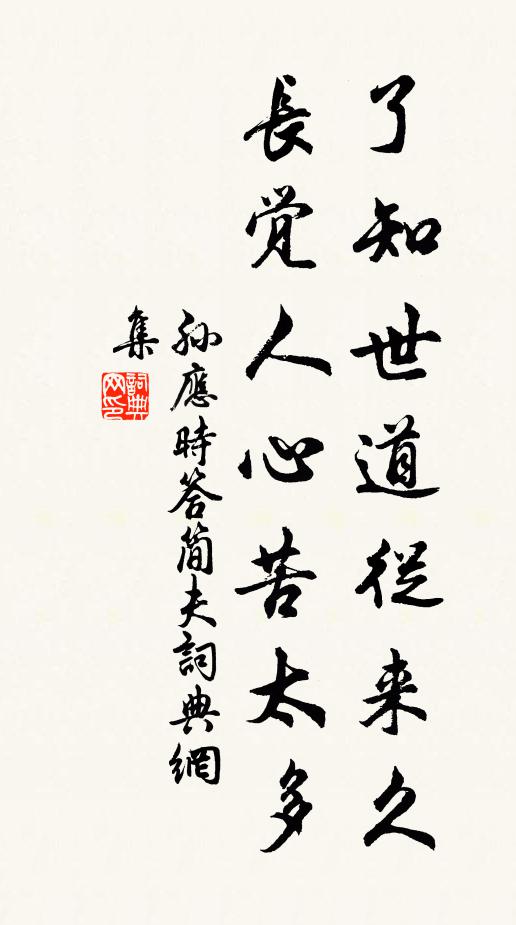 了知世道從来久
長覚人心苦太多
孫應時答简夫詞典網
集
詞典网印